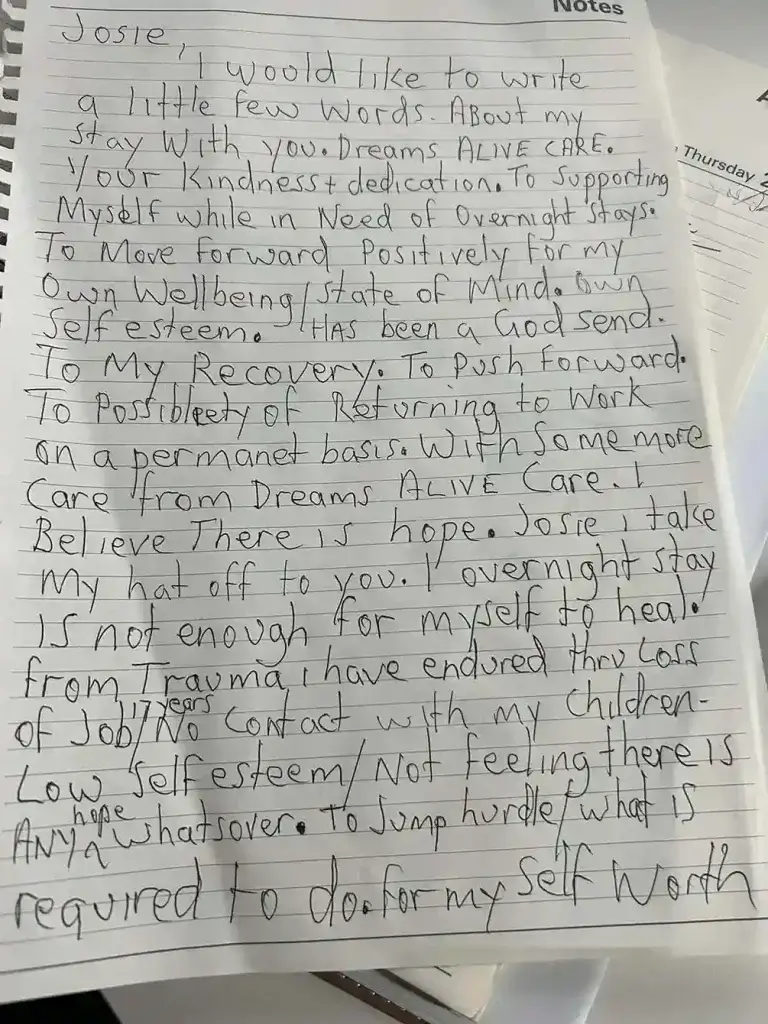 Notes
Josie,
I woold like to write
a little few words. About my
stay With you. Dreams ALIVE CARE.
Your Kindness + dedication. To Supporting
Myself while in Need of Overnight stays.
To Move forward Positively for my
Own Wellbeing/state of Mind. Own
Self esteem. HAS been a God send.
To My Recovery. To Push forward.
To Possibleety of Returning to Work
on a permanet basis. With some more
Care from Dreams ALIVE Care. I
Believe There is hope. Josie i take
My hat off to you. 1 overnight stay
is not enough for myself to heal.
from Trauma i have endured thru Loss
of Job/17 years/No Contact with my Children-
Low Self esteem/Not feeling there is
ANY hope whatsover. To Jump hurdle/what is
required to do. for my Self Worth
Thursday